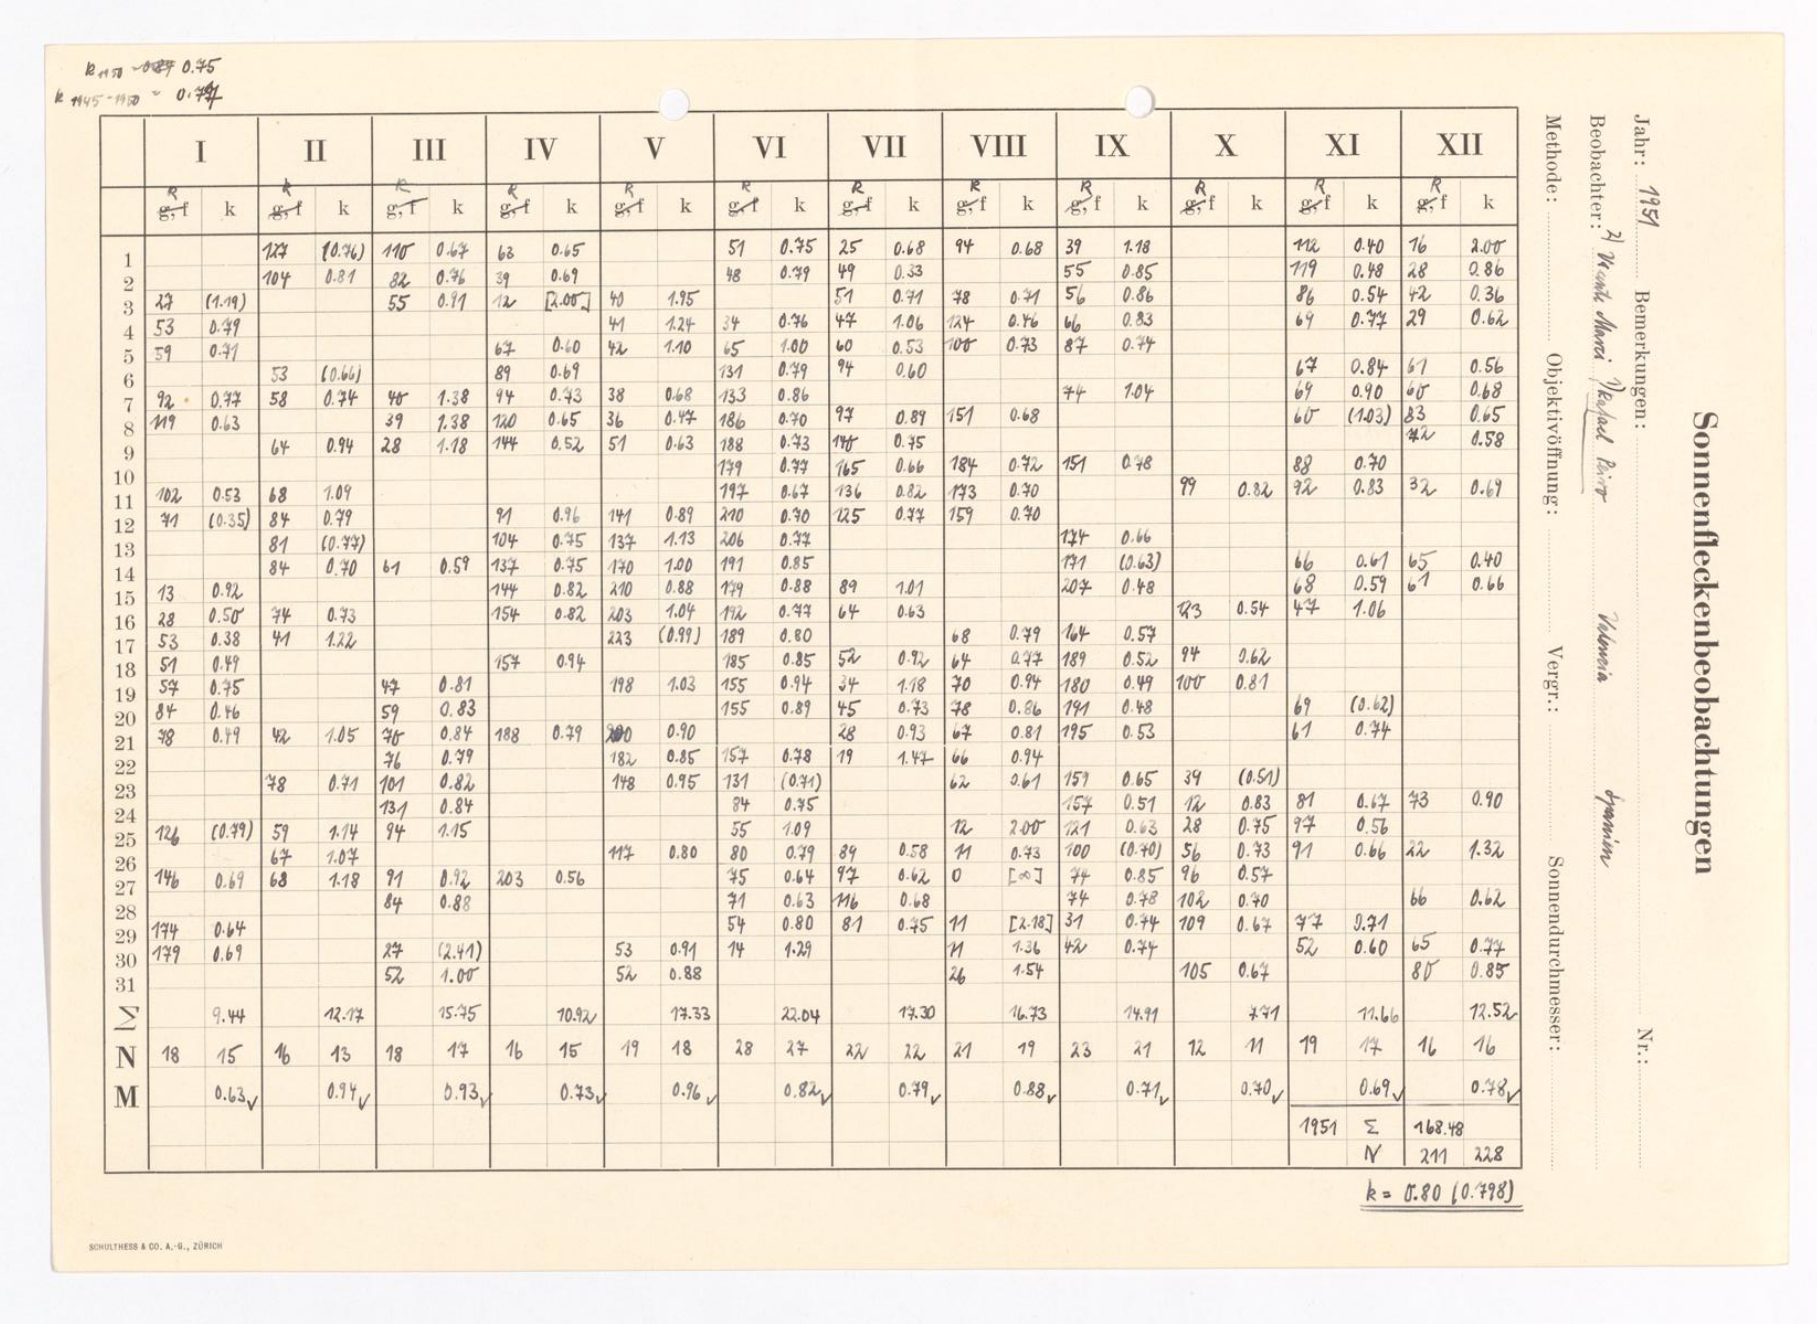 k 1950 = 0.75
k 1945-1950 =
I II III IV V VI VII VIII IX X XI XII
R R R R R R R R R R R R
g, f k g, f k g, f k g, f k g, f k g, f k g, f k g, f k g, f k g, f k g, f k g, f k
1 127 (0.76) 110 0.67 63 0.65 51 0.75 25 0.68 94 0.68 39 1.18 112 0.40 16 2.00
2 104 0.81 82 0.76 39 0.69 48 0.79 49 0.33 55 0.85 119 0.48 28 0.86
3 27 (1.19) 55 0.91 12 [2.00] 40 1.95 51 0.71 78 0.71 56 0.86 86 0.54 42 0.36
4 53 0.79 41 1.24 34 0.76 47 1.06 124 0.46 66 0.83 69 0.77 29 0.62
5 59 0.71 67 0.60 42 1.10 65 1.00 60 0.53 100 0.73 87 0.74
6 53 (0.66) 89 0.69 131 0.79 94 0.60 67 0.84 61 0.56
7 92 0.77 58 0.74 40 1.38 94 0.73 38 0.68 133 0.86 74 1.04 69 0.90 60 0.68
8 119 0.63 39 1.38 120 0.65 36 0.47 186 0.70 97 0.89 151 0.68 60 (1.03) 83 0.65
9 64 0.94 28 1.18 144 0.52 51 0.63 188 0.73 140 0.75 72 0.58
10 179 0.77 165 0.66 184 0.72 151 0.78 88 0.70
11 102 0.53 68 1.09 197 0.67 136 0.82 173 0.70 99 0.82 92 0.83 32 0.69
12 71 (0.35) 84 0.79 91 0.96 141 0.89 210 0.70 125 0.77 159 0.70
13 81 (0.77) 104 0.75 137 1.13 206 0.77 174 0.66
14 84 0.70 61 0.59 137 0.75 170 1.00 191 0.85 171 (0.63) 66 0.61 65 0.40
15 13 0.92 144 0.82 210 0.88 179 0.88 89 1.01 207 0.48 68 0.59 61 0.66
16 28 0.50 74 0.73 154 0.82 203 1.04 192 0.77 64 0.63 123 0.54 47 1.06
17 53 0.38 41 1.22 223 (0.99) 189 0.80 68 0.79 164 0.57
18 51 0.49 157 0.94 185 0.85 52 0.92 64 0.77 189 0.52 94 0.62
19 57 0.75 47 0.81 198 1.03 155 0.94 34 1.18 70 0.94 180 0.49 100 0.81
20 84 0.46 59 0.83 155 0.89 45 0.73 78 0.86 191 0.48 69 (0.62)
21 78 0.49 42 1.05 70 0.84 188 0.79 200 0.90 28 0.93 67 0.81 195 0.53 61 0.74
22 76 0.79 182 0.85 157 0.78 19 1.47 66 0.94
23 78 0.71 101 0.82 148 0.95 131 (0.71) 62 0.61 159 0.65 39 (0.51)
24 131 0.84 84 0.75 157 0.51 12 0.83 81 0.67 73 0.90
25 126 (0.79) 59 1.14 94 1.15 55 1.09 12 2.00 121 0.63 28 0.75 97 0.56
26 67 1.07 117 0.80 80 0.79 89 0.58 11 0.73 100 (0.70) 56 0.73 91 0.66 22 1.32
27 146 0.69 68 1.18 91 0.92 203 0.56 75 0.64 97 0.62 0 [∞] 74 0.85 96 0.57
28 84 0.88 71 0.63 116 0.68 74 0.78 102 0.70 66 0.62
29 174 0.64 54 0.80 81 0.75 11 [2.18] 31 0.74 109 0.67 77 0.71
30 179 0.69 27 (2.41) 53 0.91 14 1.29 11 1.36 42 0.74 52 0.60 65 0.77
31 52 1.00 52 0.88 26 1.54 105 0.67 80 0.85
Σ 9.44 12.17 15.75 10.92 17.33 22.04 17.30 16.73 14.91 7.71 11.66 12.52
N 18 15 16 13 18 17 16 15 19 18 28 27 22 22 21 19 23 21 12 11 19 17 16 16
M 0.63 ✓ 0.94 ✓ 0.93 ✓ 0.73 ✓ 0.96 ✓ 0.82 ✓ 0.79 ✓ 0.88 ✓ 0.71 ✓ 0.70 ✓ 0.69 ✓ 0.78 ✓
1951 Σ 168.48
N 211 228
k = 0.80 (0.798)
SCHULTHESS & CO. A.-G., ZÜRICH
Sonnenfleckenbeobachtungen
Jahr: 1951 Bemerkungen: Nr.:
Beobachter: Rafael Valencia Spanien
Methode: Objektivöffnung: Vergr.: Sonnendurchmesser: